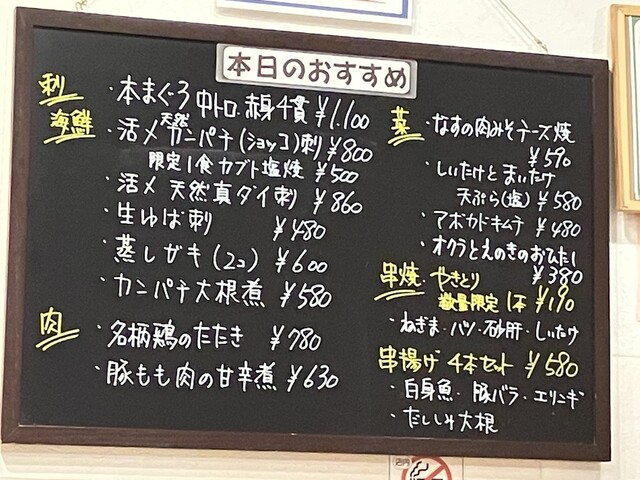 本日のおすすめ
刺
海鮮
・本まぐろ 中トロ.赤身4貫 ¥1,100
天然
・活〆 カンパチ(ショッコ)刺 ¥800
限定1食 カブト塩焼 ¥500
・活〆 天然真ダイ刺 ¥860
・生ゆば刺 ¥480
・蒸しガキ(2コ) ¥600
・カンパチ大根煮 ¥580
肉
・名柄鶏のたたき ¥780
・豚もも肉の甘辛煮 ¥630
菜
・なすの肉みそチーズ焼
¥590
・しいたけとまいたけ
天ぷら(塩) ¥580
・アボカドキムチ ¥480
・オクラとえのきのおひたし
¥380
串焼 やきとり
数量限定 1本 ¥190
・ねぎま・ハツ・砂肝・しいたけ
串揚げ 4本セット ¥580
・白身魚・豚バラ・エリンギ
・たししそ大根